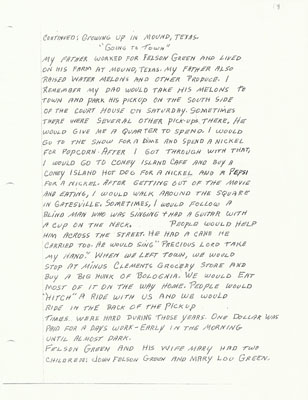 9
CONTINUED: GROWING UP IN MOUND, TEXAS.
"GOING TO TOWN"
MY FATHER WORKED FOR FELSON GREEN AND LIVED
ON HIS FARM AT MOUND, TEXAS. MY FATHER ALSO
RAISED WATER MELONS AND OTHER PRODUCE. I
REMEMBER MY DAD WOULD TAKE HIS MELONS TO
TOWN AND PARK HIS PICKUP ON THE SOUTH SIDE
OF THE COURT HOUSE ON SATURDAY. SOMETIMES
THERE WERE SEVERAL OTHER PICK-UPS THERE. HE
WOULD GIVE ME A QUARTER TO SPEND. I WOULD
GO TO THE SHOW FOR A DIME AND SPEND A NICKEL
FOR POPCORN. AFTER I GOT THROUGH WITH THAT,
I WOULD GO TO CONEY ISLAND CAFE AND BUY A
CONEY ISLAND HOT DOG FOR A NICKEL AND A PEPSI
FOR A NICKEL. AFTER GETTING OUT OF THE MOVIE
AND EATING, I WOULD WALK AROUND THE SQUARE
IN GATESVILLE. SOMETIMES, I WOULD FOLLOW A
BLIND MAN WHO WAS SINGING & HAD A GUITAR WITH
A CUP ON THE NECK. PEOPLE WOULD HELP
HIM ACROSS THE STREET. HE HAD A CANE HE
CARRIED TOO. HE WOULD SING "PRECIOUS LORD TAKE
MY HAND." WHEN WE LEFT TOWN, WE WOULD
STOP AT MINUS CLEMENTS GROCERY STORE AND
BUY A BIG HUNK OF BOLOGNIA. WE WOULD EAT
MOST OF IT ON THE WAY HOME. PEOPLE WOULD
"HITCH" A RIDE WITH US AND WE WOULD
RIDE IN THE BACK OF THE PICKUP
TIMES WERE HARD DURING THOSE YEARS. ONE DOLLAR WAS
PAID FOR A DAYS WORK-EARLY IN THE MORNING
UNTIL ALMOST DARK.
FELSON GREEN AND HIS WIFE MARY HAD TWO
CHILDREN: JOHN FELSON GREEN AND MARY LOU GREEN.